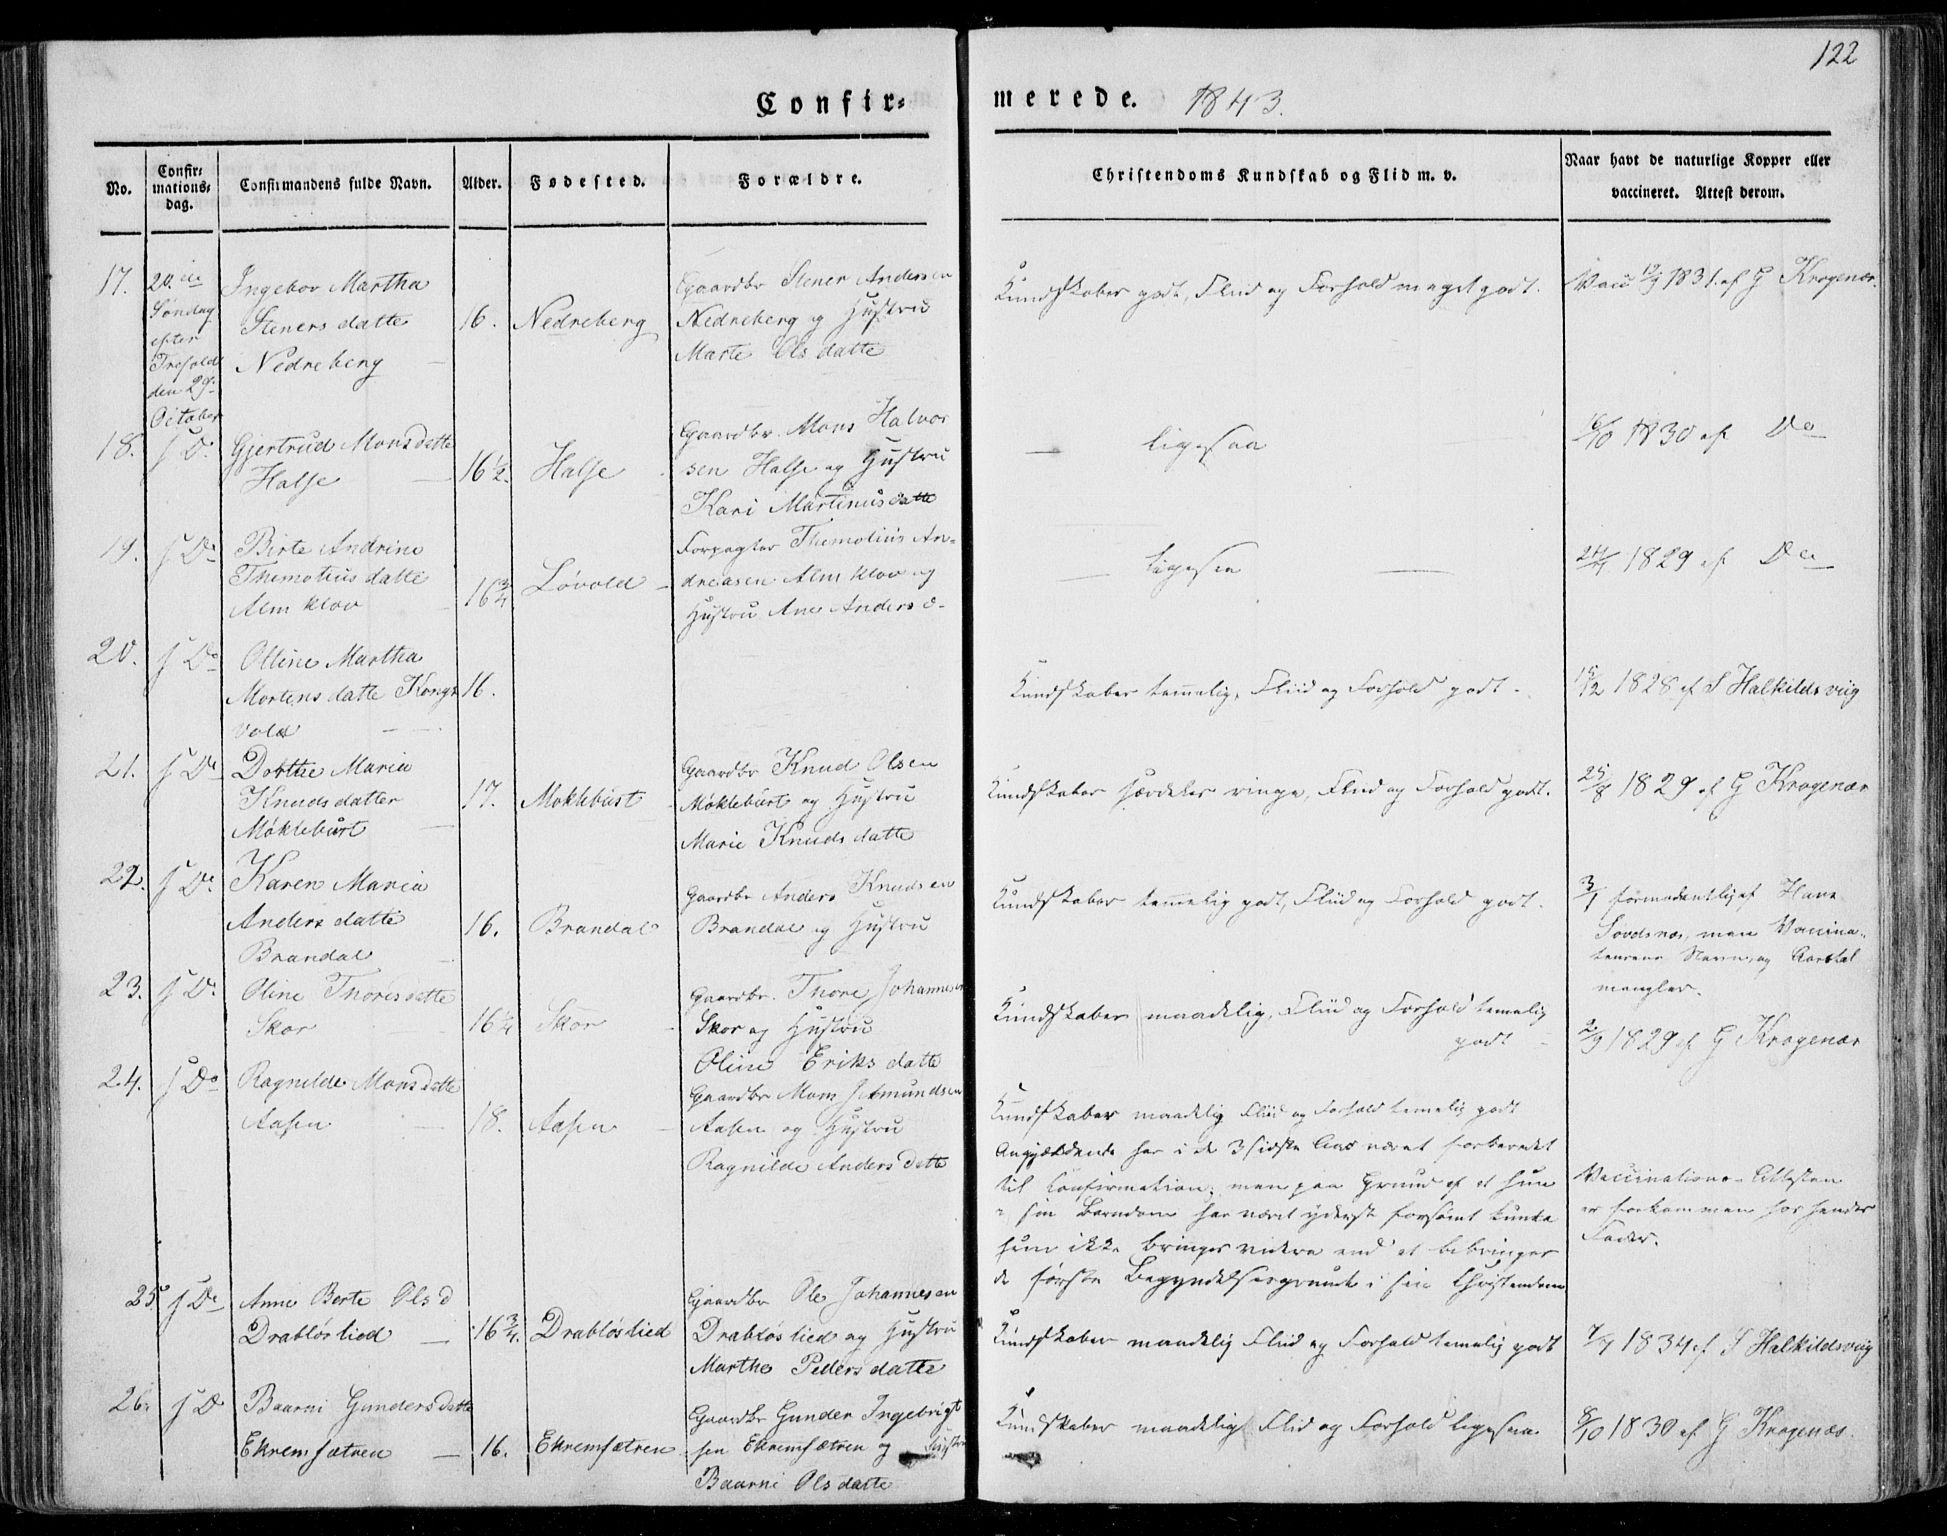 122
Confir-
merede. 1843.
No.
Confir-
mations-
dag.
Confirmandens fulde Navn.
Alder.
Fødested.
Forældre.
Christendoms Kundskab og Flid m. v.
Naar havt de naturlige Kopper eller
vaccineret. Attest derom.
17.
20.de
Søndag
efter
Trefold
den 29de
October
Ingebor Martha
Steners datte
Nedreberg
16.
Nedreberg
Gaardbr Stener Andersen
Nedreberg og Hustru
Marte Ols datte
Kundskaber godt, Fliid og Forhold meget godt.
Vacc 12/9 1831. af G Krogenæs
18.
s Do
Gjertrud Monsdatte
Halse
16 1/2.
Halse
Gaardbr. Mons Halvor
sen Halse og Hustru
Kari Martinusdatte
— ligesaa
6/10 1830 af Do
19.
s Do
Birte Andrine
Themotius datte
Alm klov
16 3/4
Løvold
Forpagter Themotius An-
dreasen Alm klov og
Hustru Ane Anders d-
— ligesaa —
24/7 1829 af Do
20.
s Do
Olline Martha
Mortens datte Kongs
vold
16.
Kundskaber temelig, Fliid og Forhold godt -
15/12 1828 af S Halkilds viig
21.
s Do
Dorthe Maria
Knuds datter
Møkleburt
17.
Mokleburt
Gaardbr Knud Olsen
Møkleburt og Hustru
Marie Knuds datte
Kundskaber særdeles ringe, Fliid og Forhold godt.
25/8 1829 af G Krogenæs
22.
s Do
Karen Maria
Anders datte
Brandal
16.
Brandal
Gaardbr Anders Knudsen
Brandal og Hustru
Kundskaber temelig godt, Fliid og Forhold godt.
3/1 formodentlig af Hans
Sovdsnæs, men Vaccina-
teurens Navn og Aarstal
mangler.
23.
s Do
Oline Thoresdatte
Skor
16 1/4
Skor
Gaardbr. Thore Johannesen
Skor og Hustru
Oline Eriks datte
Kundskaber maadelig, Fliid og Forhold temelig
godt -
2/9 1829 af G Krogenæs
24.
s Do
Ragnilde Mons datte
Aasen
18.
Aasen
Gaardbr Mons Asmundsen
Aasen og Hustru
Ragnilde Anders datte
Kundskaber maadelig Fliid og Forhold temelig godt
Angjældende har i de 3 sidste Aar været forberedet
til Confirmation; men paa Grund af at hun
i sin Barndom har været yderst forsømt kunde
hun ikke bringes videre end at bebringes
de første Begyndelsesgrunde i sin Christendom
Vaccinations-Attesten
er forkommen for hendes
Fader.
25
s Do
Anne Berte Ols d
Drabløs lied
16 3/4.
Drabløs lied
Gaardbr Ole Johannesen
Drabløs lied og Hustru
Marthe Peders datte
Kundskaber maadelig Fliid og Forhold temelig godt
7/7 1834 af S Halkildsviig
26.
s D
Baarni Gunders datte
Ekremsætren
16.
Ekremsætren
Gaardbr Gunder Ingebrigt
sen Ekremsætren og Hustru
Baarni Ols datte
Kundskaber maadelig Flid og Forhold ligesaa
8/10 1830 af G Krogenæs.